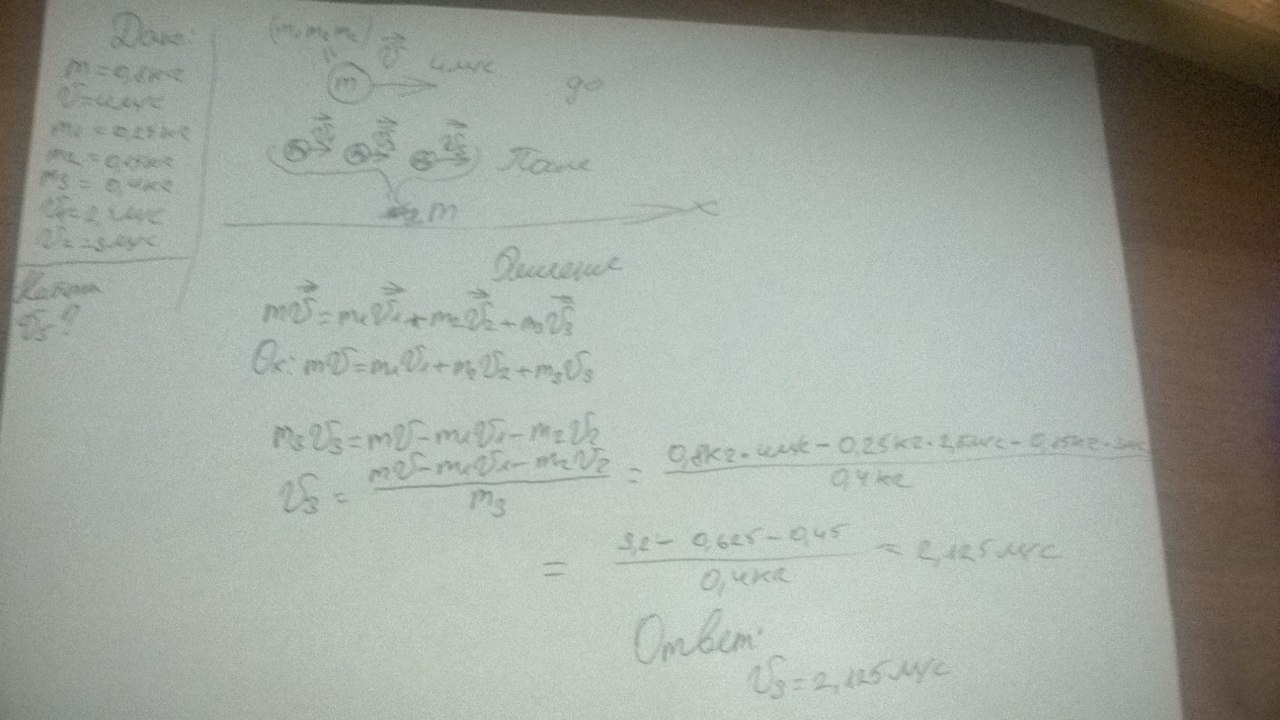 Дано:
m = 0,8 кг
v = 4 м/с
m₁ = 0,25 кг
m₂ = 0,15 кг
m₃ = 0,4 кг
v₁ = 2,5 м/с
v₂ = 3 м/с
Найти
v₃ ?
v⃗ 4 м/с
m
до
После
m
x
Решение
mv⃗ = m₁v⃗₁ + m₂v⃗₂ + m₃v⃗₃
Ox: mv = m₁v₁ + m₂v₂ + m₃v₃
m₃v₃ = mv - m₁v₁ - m₂v₂
v₃ = (mv - m₁v₁ - m₂v₂) / m₃ = (0,8 кг · 4 м/с - 0,25 кг · 2,5 м/с - 0,15 кг · 3 м/с) / 0,4 кг
= (3,2 - 0,625 - 0,45) / 0,4 кг = 2,125 м/с
Ответ:
v₃ = 2,125 м/с